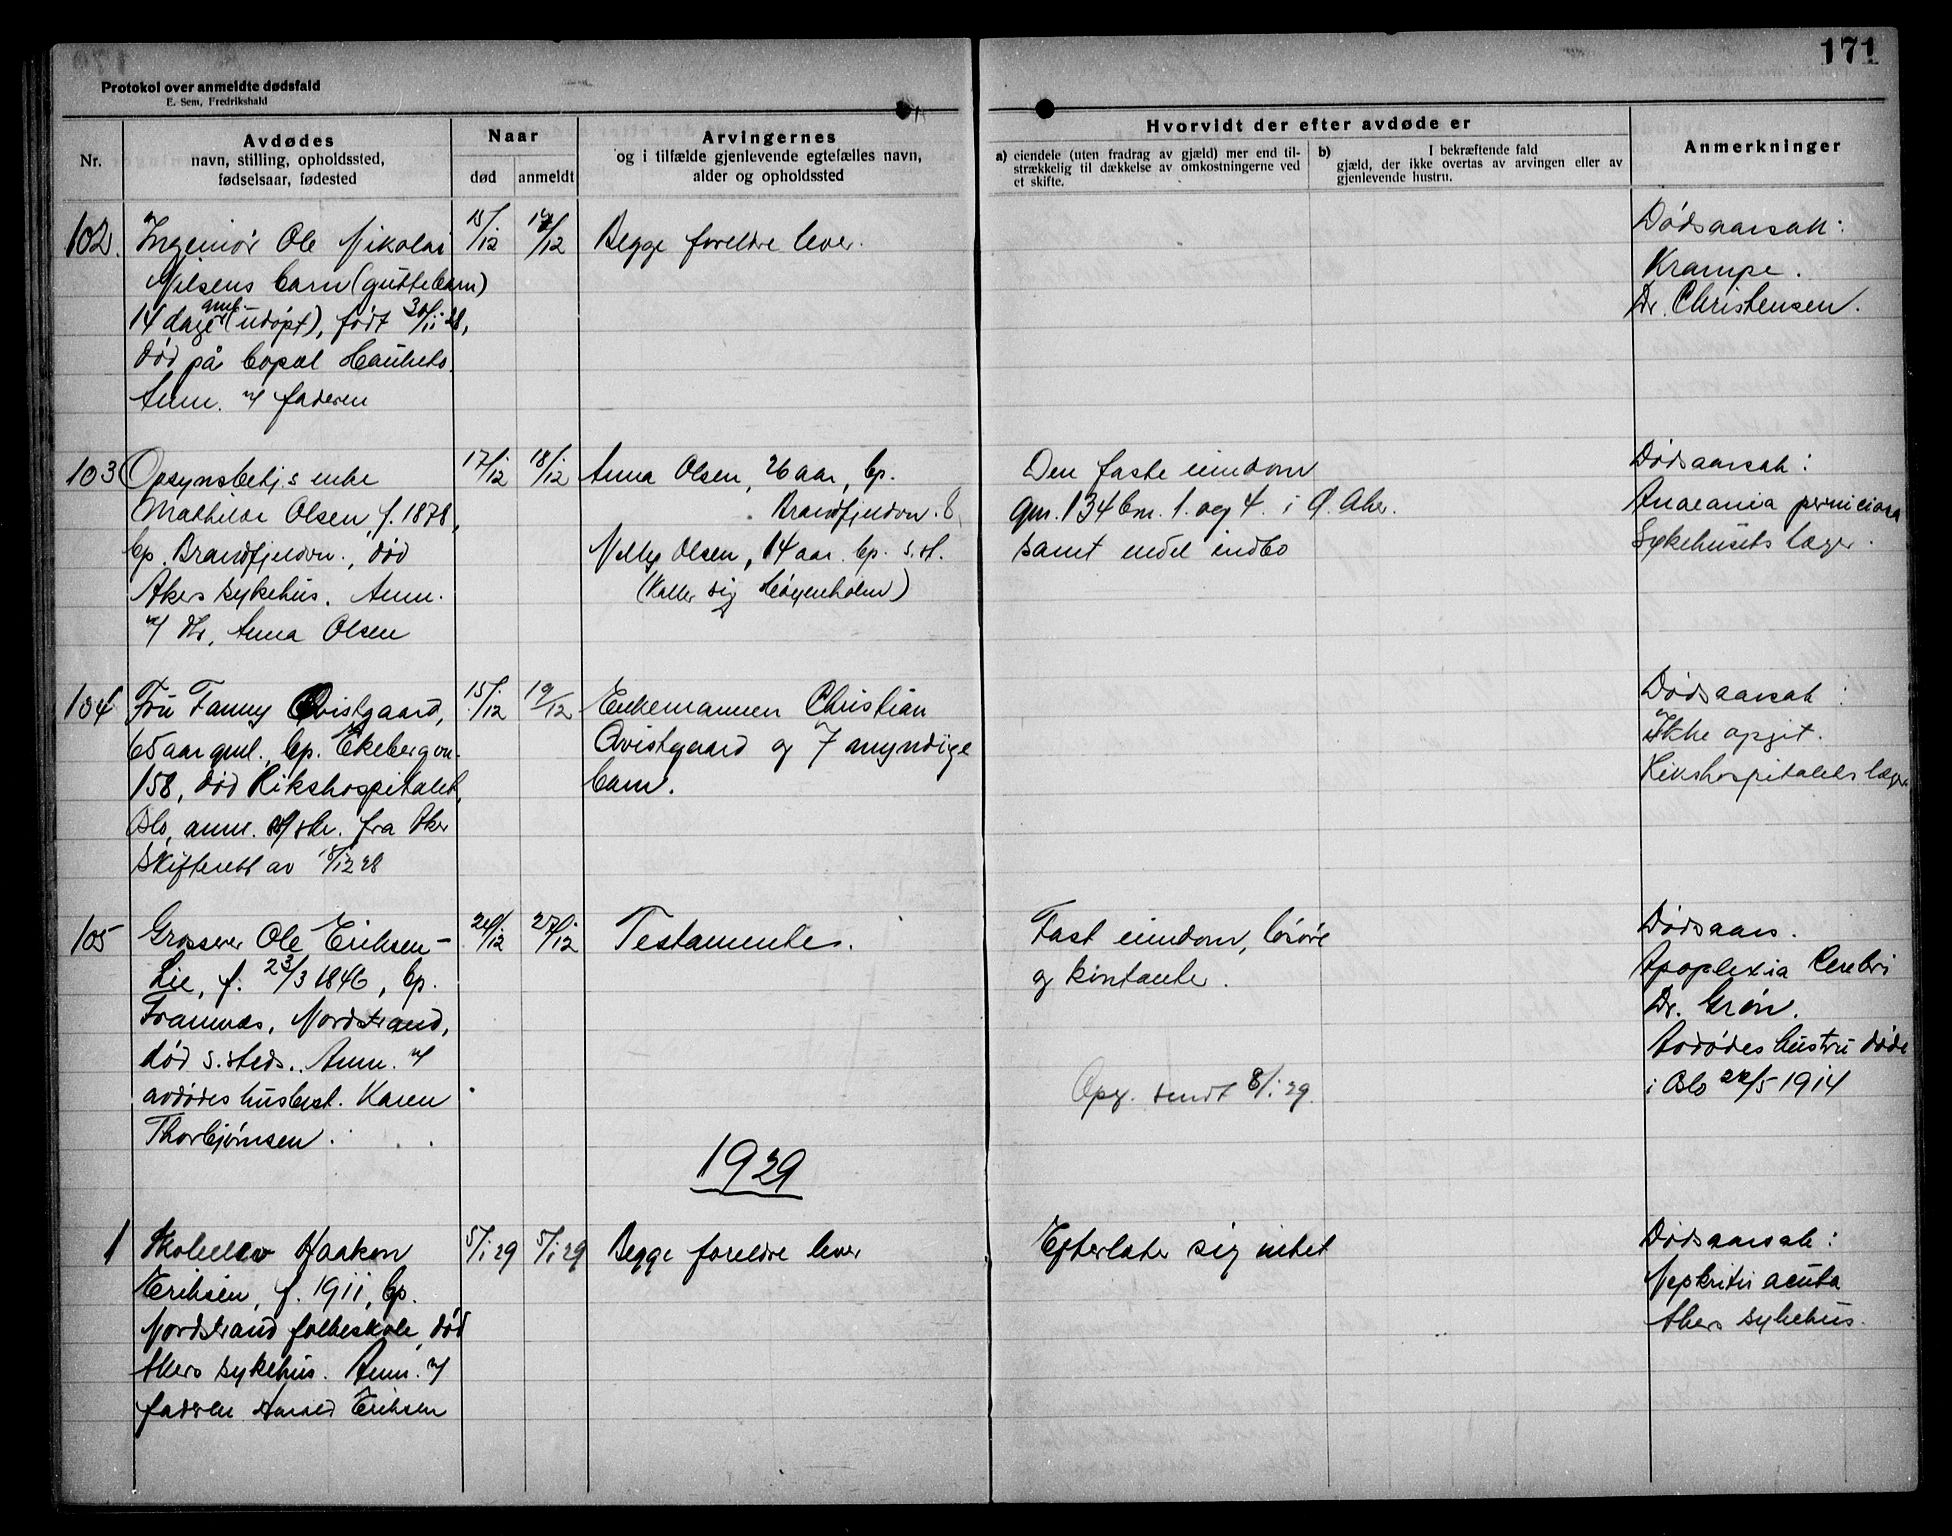 171
Protokol over anmeldte dødsfald
E. Sem, Fredrikshald
Nr.
Avdødes
navn, stilling, opholdssted,
fødselsaar, fødested
Naar
død
anmeldt
Arvingernes
og i tilfælde gjenlevende egtefælles navn,
alder og opholdssted
Hvorvidt der efter avdøde er
a) eiendele (uten fradrag av gjæld) mer end til-
strækkelig til dækkelse av omkostningerne ved
et skifte.
b) I bekræftende fald
gjæld, der ikke overtas av arvingen eller av
gjenlevende hustru.
Anmerkninger
102.
Ingeniør Ole Nikolai
Nilsens barn (guttebarn)
14 dage gml. (udøpt), født 30/11 28,
død på bopæl Hauketo.
Anm. v/ faderen
15/12
17/12
Begge foreldre lever.
Dødsaarsak:
Krampe.
Dr. Christensen.
103
Opsynsbetj.s enke
Mathilde Olsen f. 1878,
bp. Brandfjeldvn., død
Akers sykehus. Anm.
v/ dtr. Anna Olsen
17/12
18/12
Anna Olsen, 26 aar, bp.
Brandfjeldvn. 8.
Nelly Olsen, 14 aar. bp. s.st.
(Kaller sig Høyenholm)
Den faste eiendom
gnr. 134 bnr. 1. og 4. i Ø. Aker.
samt endel indbo
Dødsaarsak:
Anaemia perniciosa
Sykehusets læger.
104
Fru Fanny Qvistgaard,
65 aar gml. bp. Ekebergvn.
158, død Rikshospitalet,
Oslo, anm. v/ skr. fra Aker
skifterett av 18/12 28
15/12
19/12
Enkemannen Christian
Qvistgaard og 7 myndige
barn.
Dødsaarsak:
Ikke opgit.
Rikshospitalets læger
105
Grosserer Ole Eriksen-
Lie, f. 23/3 1846, bp.
Framnæs, Nordstrand,
død s. steds. Anm. v/
avdødes husbest. Karen
Thorbjørnsen.
27/12
Testamente.
Fast eiendom, løsøre
og kontanter.
Opg. sendt 8/1 29
Dødsaars.
Apoplexia Cerebri
Dr. Grøn.
Avdødes hustru døde
i Oslo 22/5 1914
1929
1
Skoleelev Haakon
Eriksen, f. 1911, bp.
Nordstrand folkeskole, død
Akers sykehus. Anm. v/
faderen Harald Eriksen
5/1 29
5/1 29
Begge foreldre lever
Efterlater sig intet
Dødsaarsak:
Nephritis acuta
Akers sykehus.